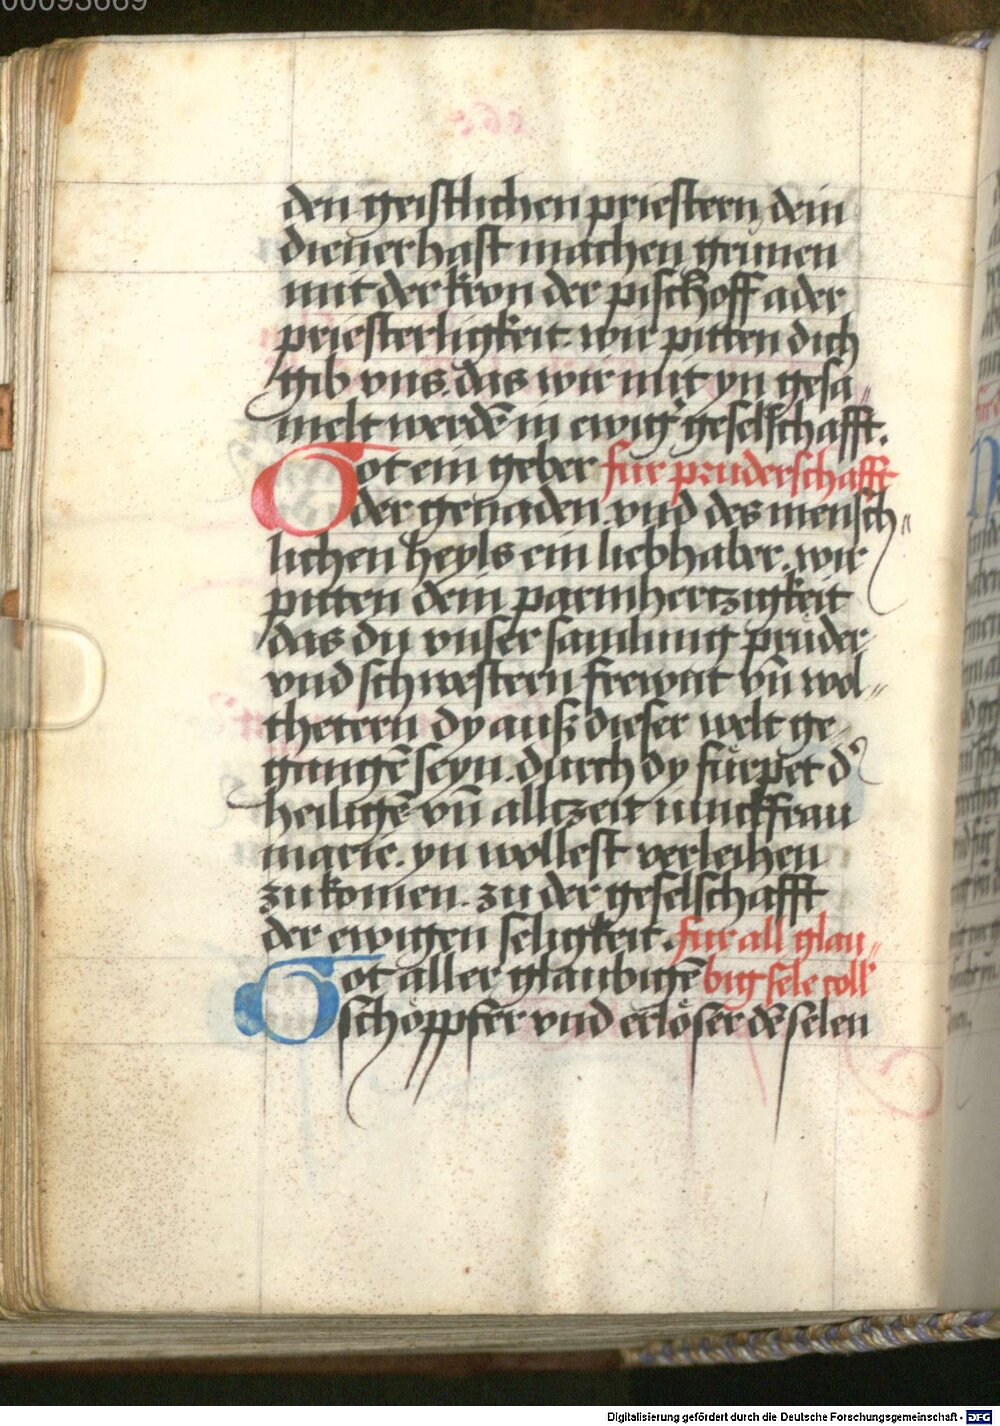 00093669
den geistlichen priestern dein
diener hast machen grunen
mit der kron der pischoff ader
priesterligkeit. wir pitten dich
gib vns. das wir mit yn gesa„
melt werdē in ewigʼ geselschafft.
Got ein geber fur pruderschafft
der genaden. vnd des mensch„
lichen heyls ein liebhaber. wir
pitten dein parmhertzigkeit
das du vnser samlung prüder
vnd schwestern frewnt vn̄ wol„
thetern dy auß dieser welt ge
gangē seyn. durch dy fürpet dʼ
heiligē vn̄ allczeit iunckfrau
marie. yn wollest verleihen
zu komen. zu der geselschafft
der ewigen seligkeit. fur all glau„
Got aller glaubigē big sele coll
schöpffer vnd erlöser dē selen
Digitalisierung gefördert durch die Deutsche Forschungsgemeinschaft - DFG